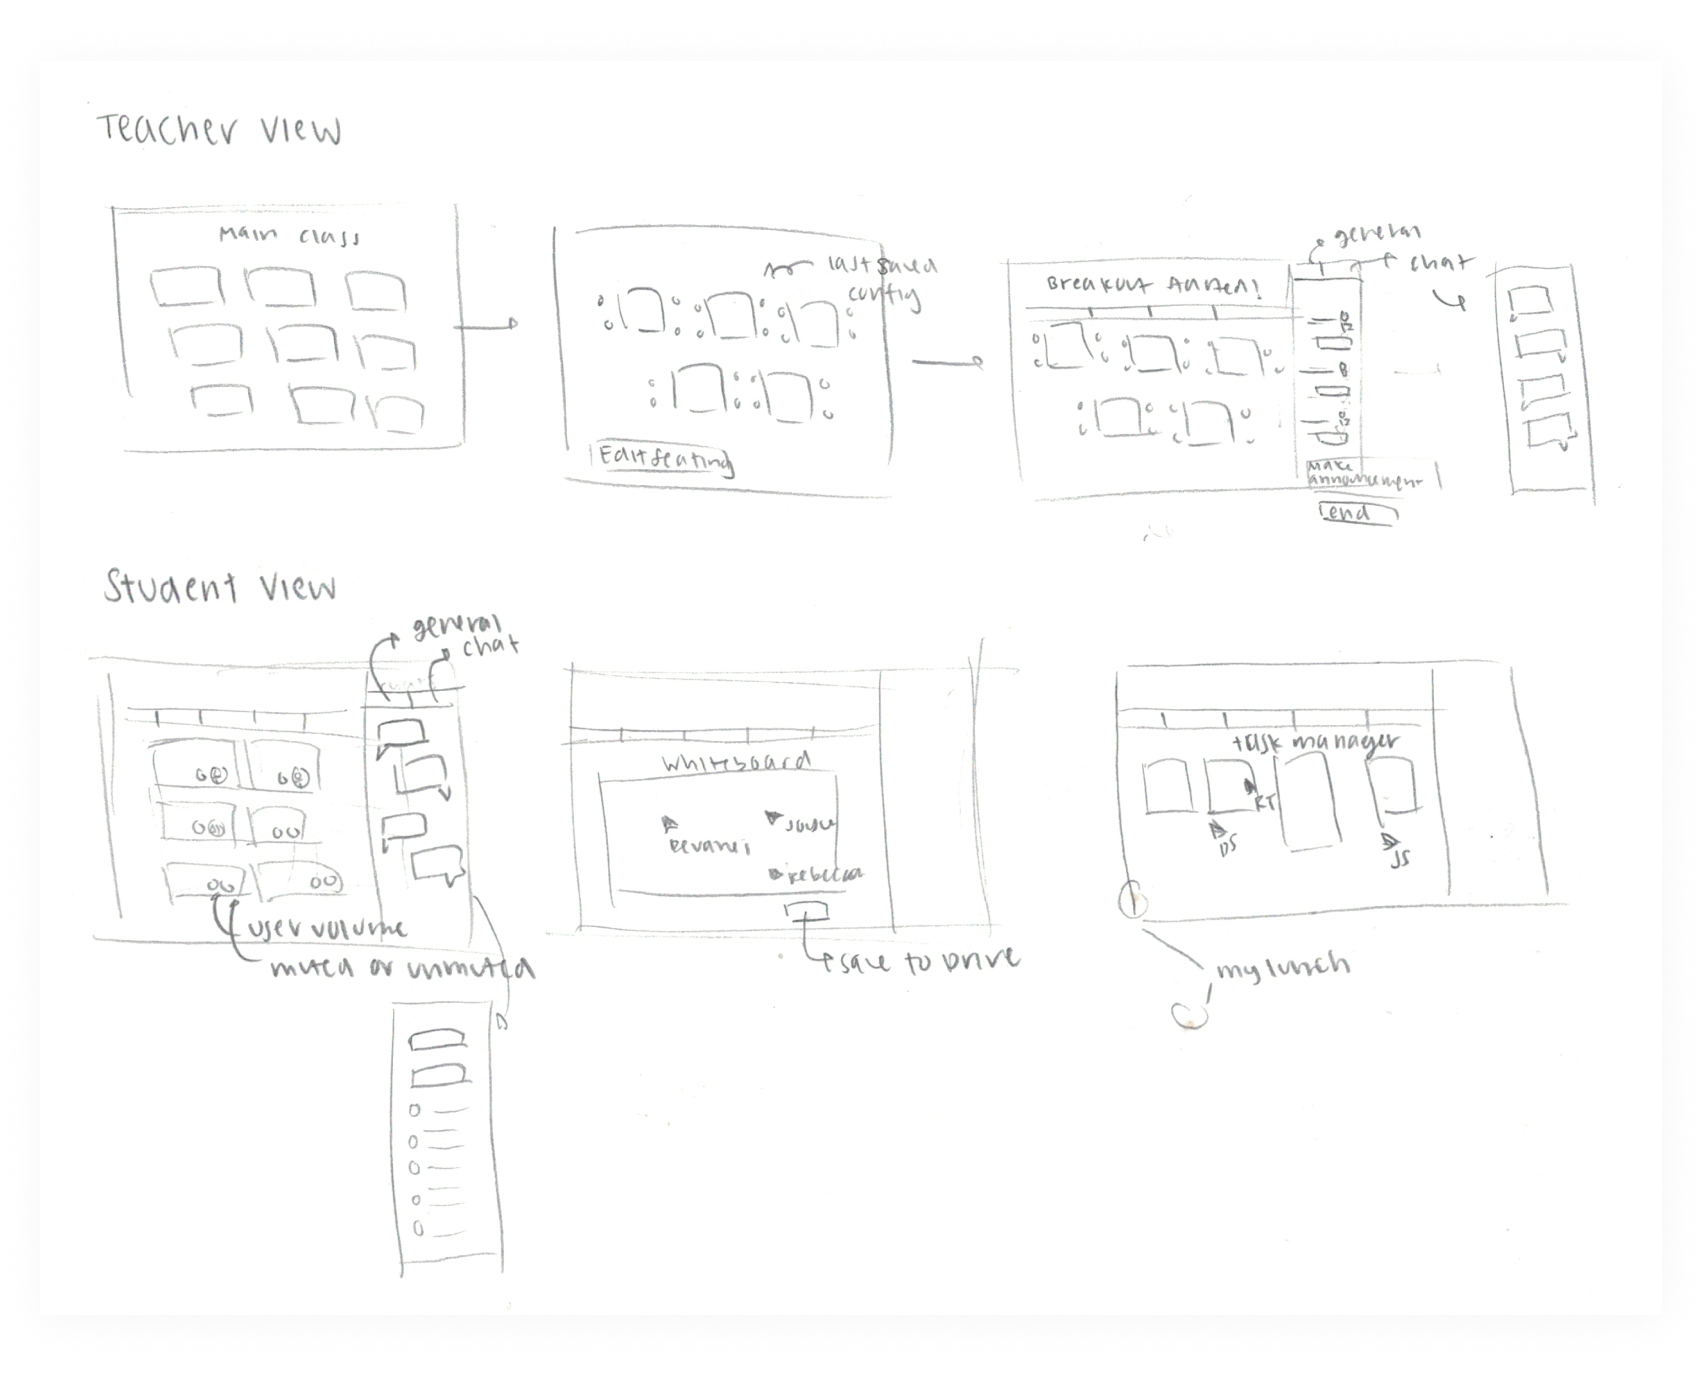 Teacher View
Main class
last saved
config
Edit seating
Breakout
general
chat
Make
announcement
end
Student View
general
chat
user volume
muted or unmuted
Whiteboard
rebecca
save to Drive
task manager
RT
DS
JS
my lunch